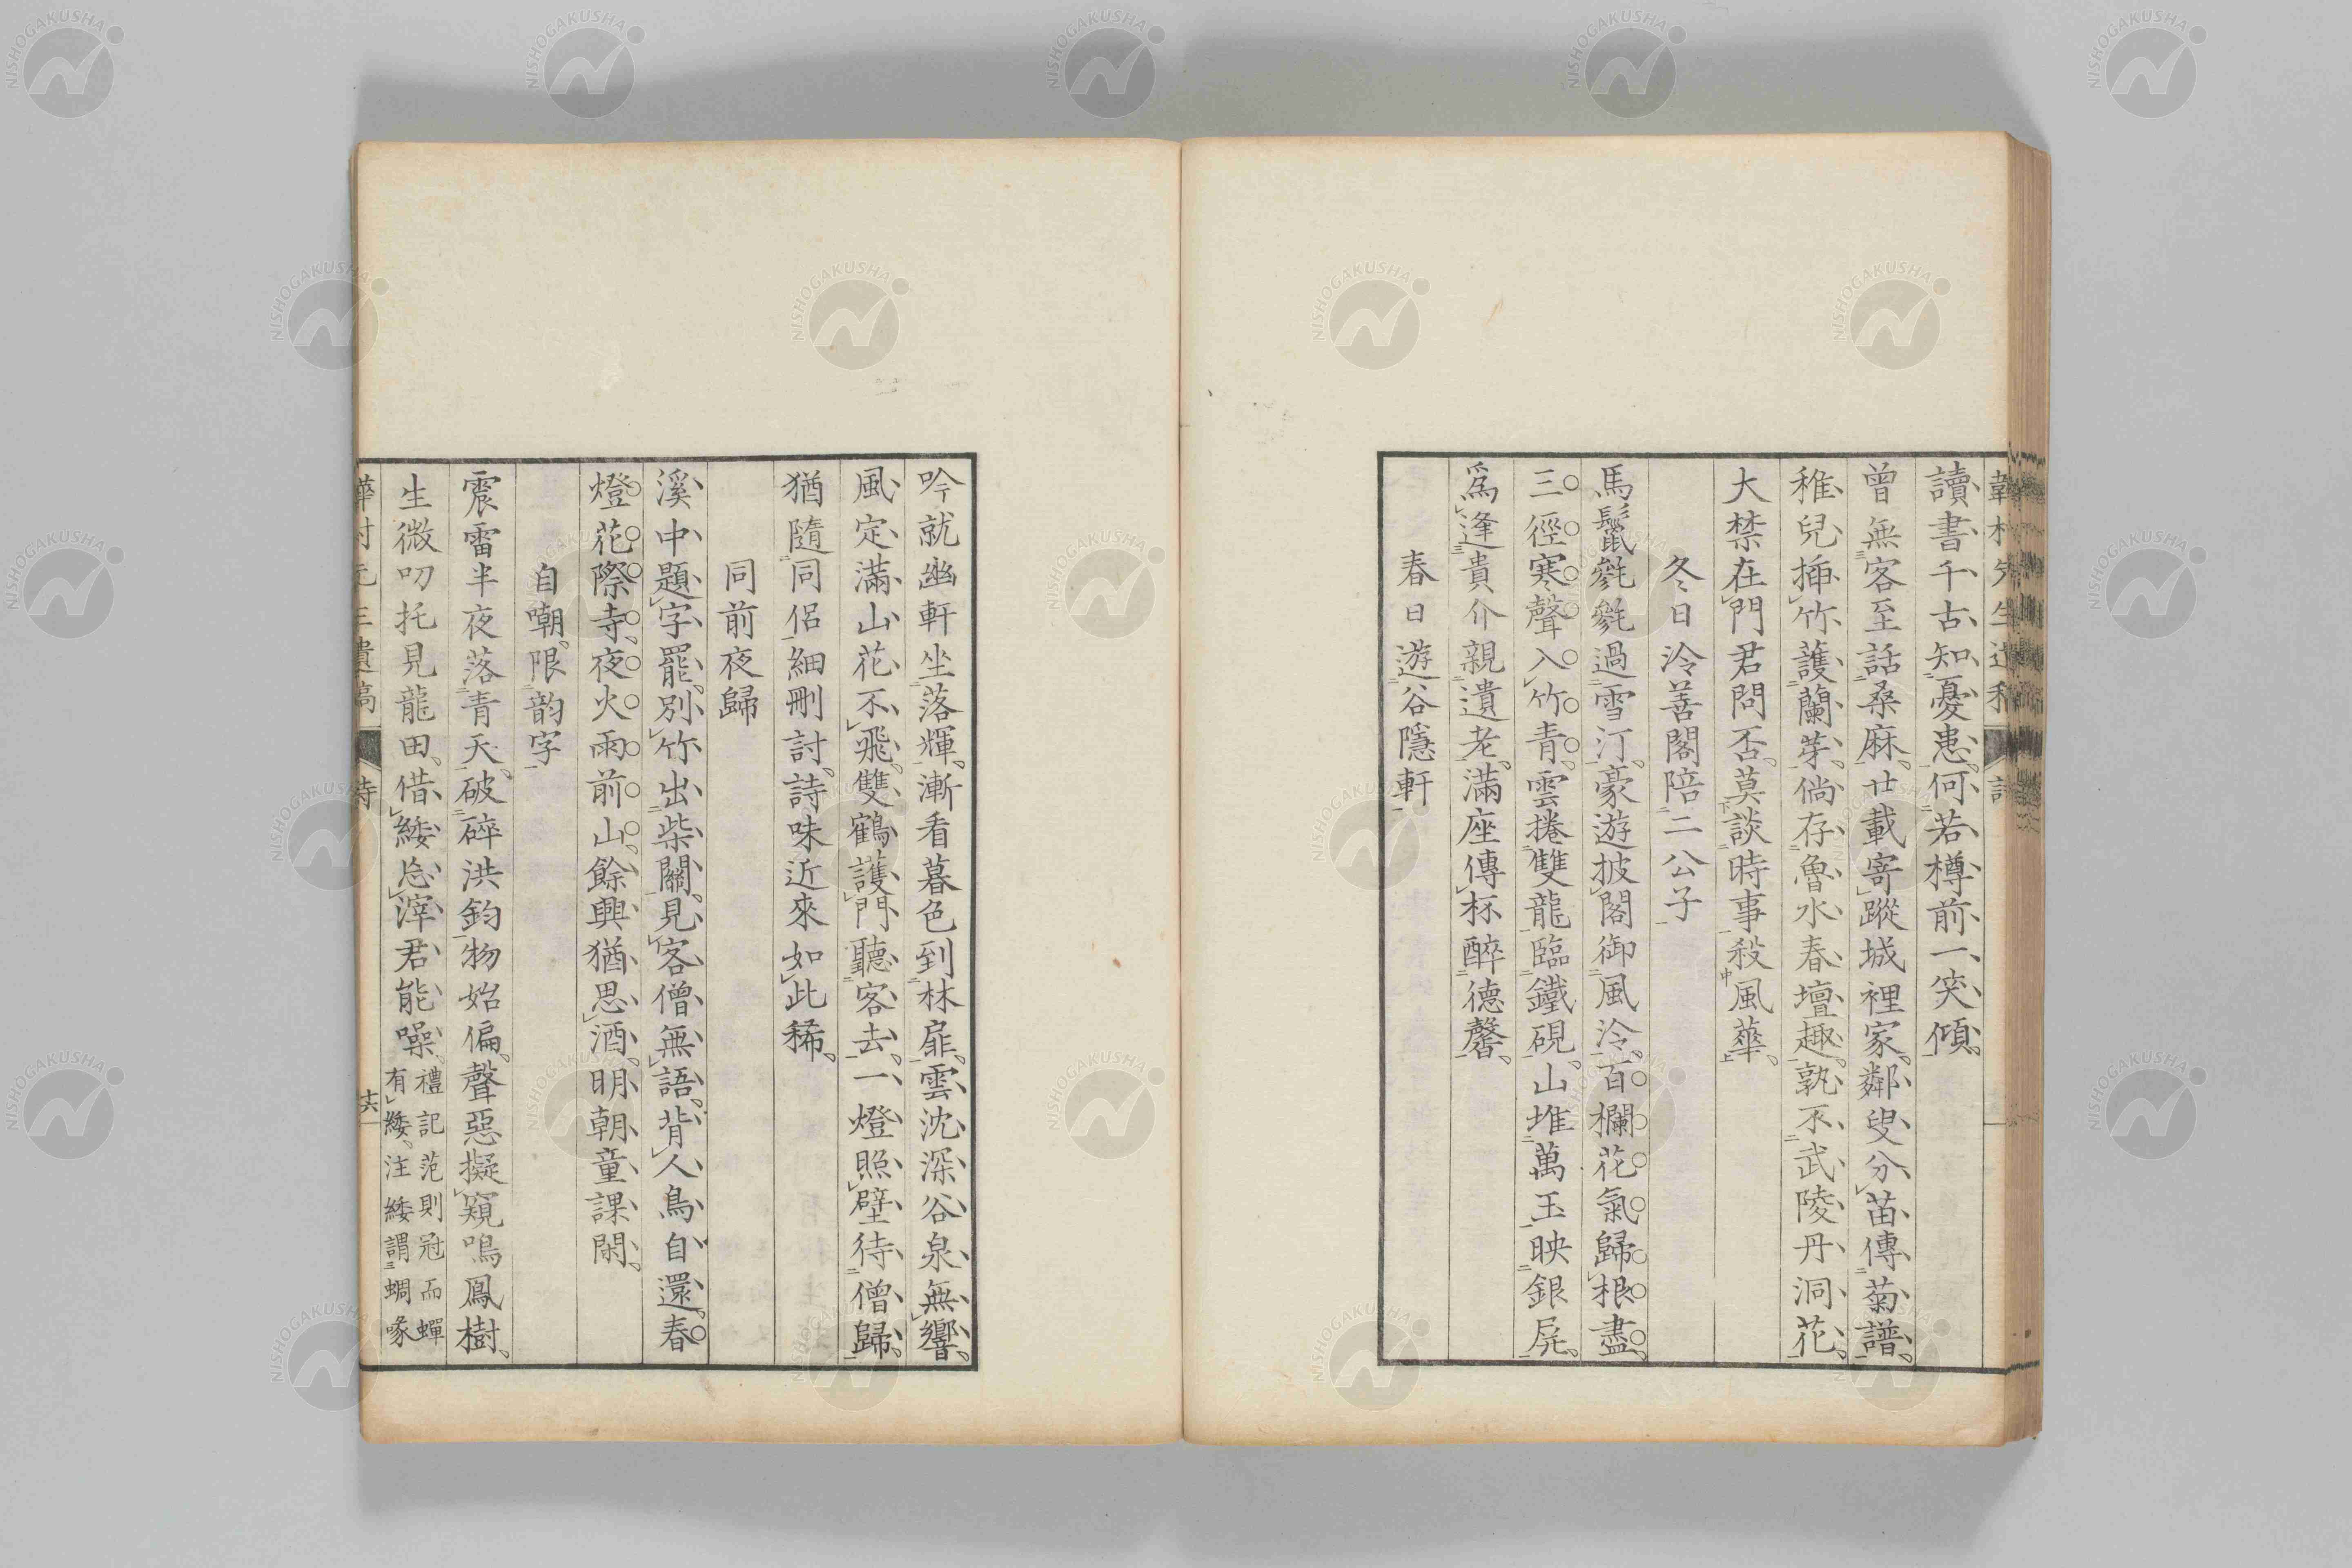 讀書千古知憂患何若樽前一笑傾
曾無客至話桑麻廿載寄蹤城裡家鄰叟分苗傳菊譜
稚兒挿竹護蘭芽倘存魯水春壇趣孰不武陵丹洞花
大禁在門君問否莫談時事殺風華
冬日泠善閣陪二公子
馬鬣毿毿過雪汀豪遊披閣御風泠百欄花氣歸根盡
三徑寒聲入竹青雲捲雙龍臨鐵硯山堆萬玉映銀屏
爲逢貴介親遺老滿座傳杯醉德馨
春日遊谷隱軒
吟就幽軒坐落輝漸看暮色到林扉雲沈深谷泉無響
風定滿山花不飛雙鶴護門聽客去一燈照壁待僧歸
猶隨同侶細刪討詩味近來如此稀
同前夜歸
溪中題字罷別竹出柴關見客僧無語背人鳥自還春
燈花際寺夜火雨前山餘興猶思酒明朝童課閑
自嘲限韵字
震雷半夜落青天破碎洪鈞物始偏聲惡擬窺鳴鳳樹
生微叨托見龍田借緌忩滓君能噪禮記范則冠而蟬
有緌注緌謂蜩喙
詩
十六
NISHOGAKUSHA